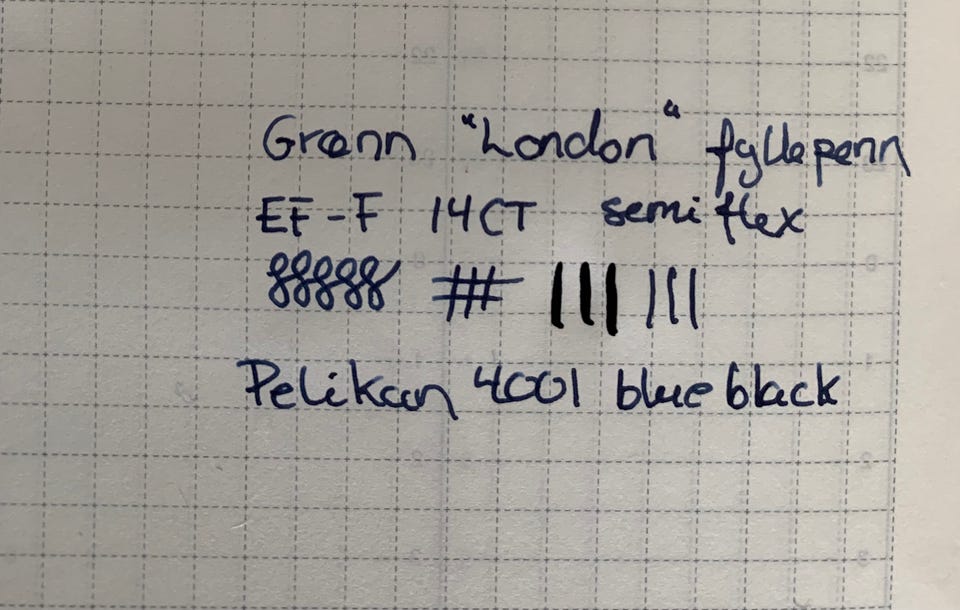 Grønn "London" fyllepenn
EF-F 14CT semiflex
88888 ## ||| |||
Pelikan 4001 blue black